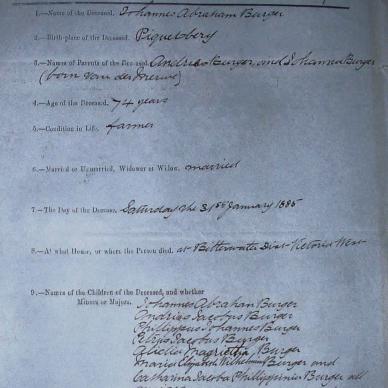 1.—Name of the Deceased, Johannes Abraham Burger
2.—Birth-place of the Deceased, Piquetbery
3.—Names of Parents of the Deceased, Andries Burger and Johanna Burger
(born van der Merwe)
4.—Age of the Deceased, 74 years
5.—Condition in Life, farmer
6.—Married or Unmarried, Widower or Widow, married
7.—The Day of the Decease, Saturday the 31st January 1885
8.—At what House, or where the Person died, at Bitterwater Dist Victoria West
9.—Names of the Children of the Deceased, and whether
Minors or Majors,
Johannes Abraham Burger
Andries Jacobus Burger
Philippus Johannes Burger
Jacobus Burger
Burger
Maria Burger and
Catharina Jacoba Burger all